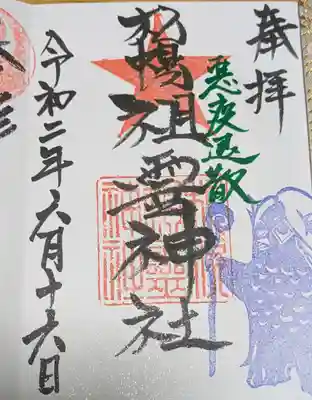 奉拝
悪疫退散
札幌祖霊神社
令和二年六月十六日